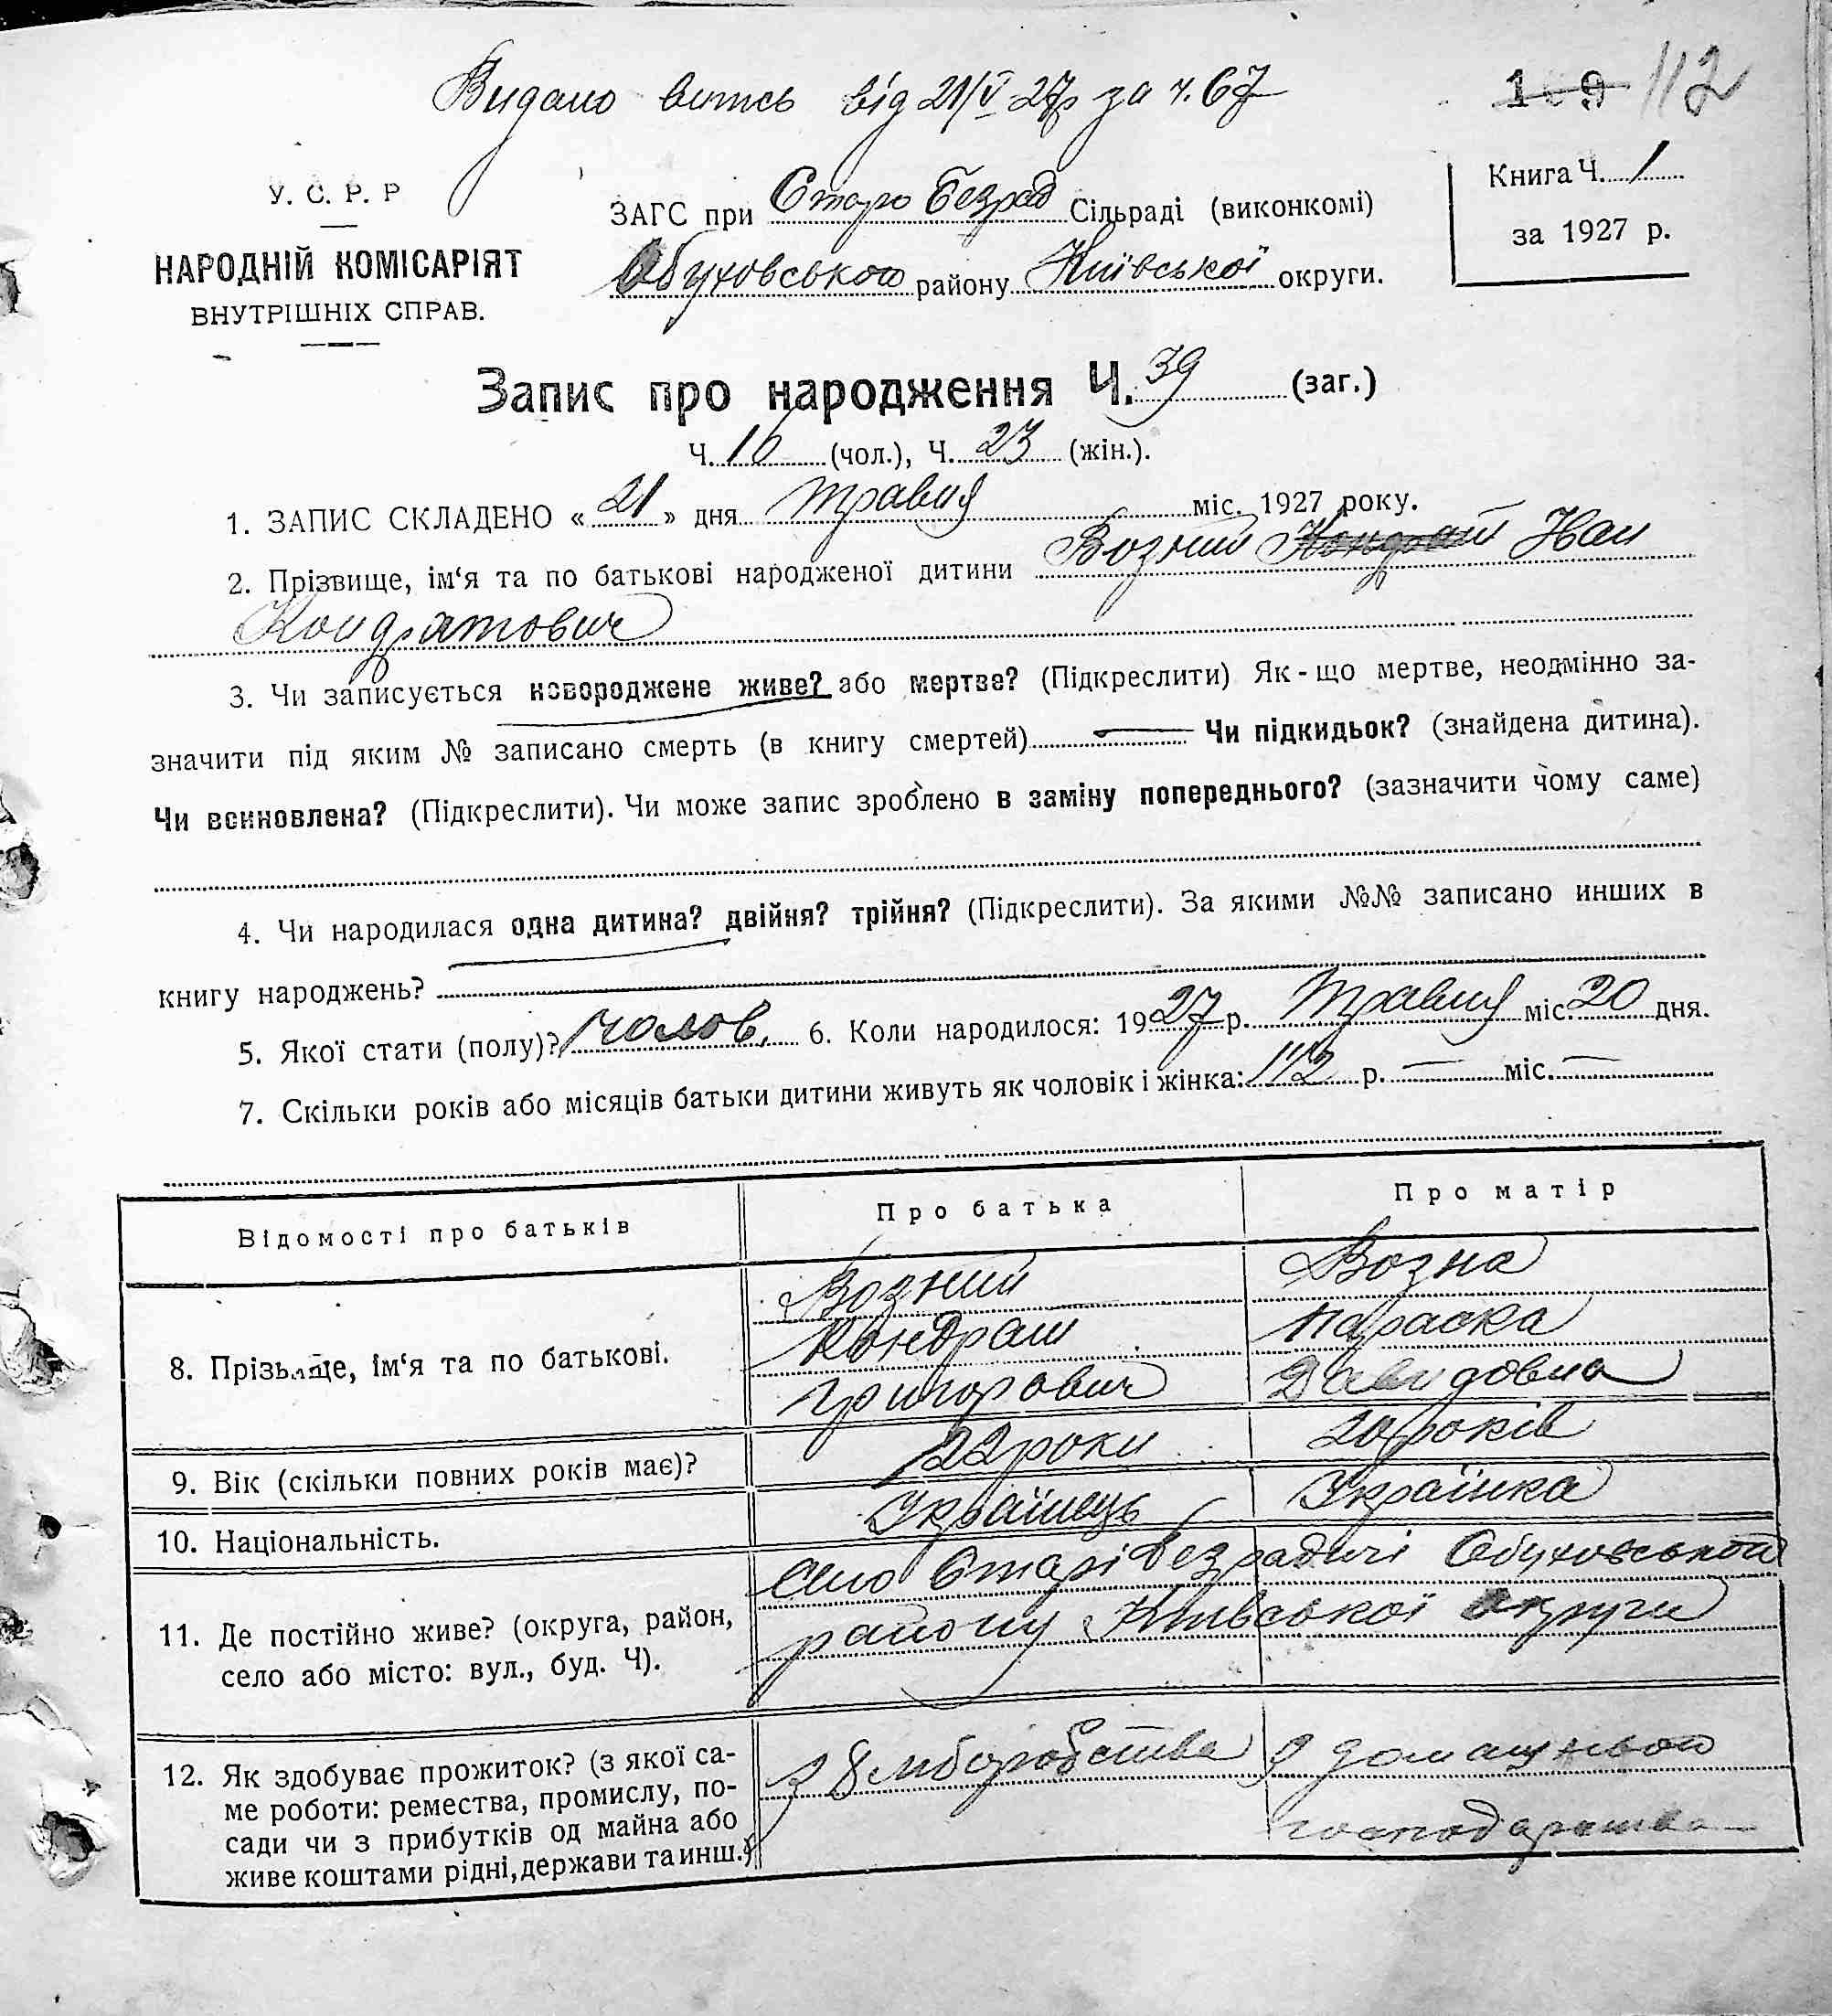 Видано витсь від 21/V 27р за ч. 67
109 112
У. С. Р. Р
НАРОДНІЙ КОМІСАРІЯТ
ВНУТРІШНІХ СПРАВ.
ЗАГС при Старо Безрад Сільраді (виконкомі)
Обуховського району Київської округи.
Книга Ч. 1
за 1927 р.
Запис про народження Ч. 39 (заг.)
Ч. 16 (чол.), Ч. 23 (жін.).
1. ЗАПИС СКЛАДЕНО « 21 » дня травня міс. 1927 року.
2. Прізвище, ім‘я та по батькові народженої дитини Возний Кондрат Іван
Кондратович
3. Чи записується новороджене живе? або мертве? (Підкреслити) Як-що мертве, неодмінно за-
значити під яким № записано смерть (в книгу смертей) — Чи підкидьок? (знайдена дитина).
Чи всиновлена? (Підкреслити). Чи може запис зроблено в заміну попереднього? (зазначити чому саме)
4. Чи народилася одна дитина? двійня? трійня? (Підкреслити). За якими №№ записано инших в
книгу народжень?
5. Якої стати (полу)? чолов. 6. Коли народилося: 1927 р. Травня міс. 20 дня.
7. Скільки років або місяців батьки дитини живуть як чоловік і жінка: 1 1/2 р. — міс. —
Відомості про батьків Про батька Про матір
8. Прізвище, ім‘я та по батькові.
Возний Возна
Кондрат Параска
Григорович Давидовна
9. Вік (скільки повних років має)? 22 роки 20 років
10. Національність. Українець Українка
11. Де постійно живе? (округа, район,
село або місто: вул., буд. Ч).
Село Старі Безрадичі Обуховського
району Київської округи
12. Як здобуває прожиток? (з якої са-
ме роботи: ремества, промислу, по-
сади чи з прибутків од майна або
живе коштами рідні, держави та инш.)
з хліборобства з домашнього
господарства